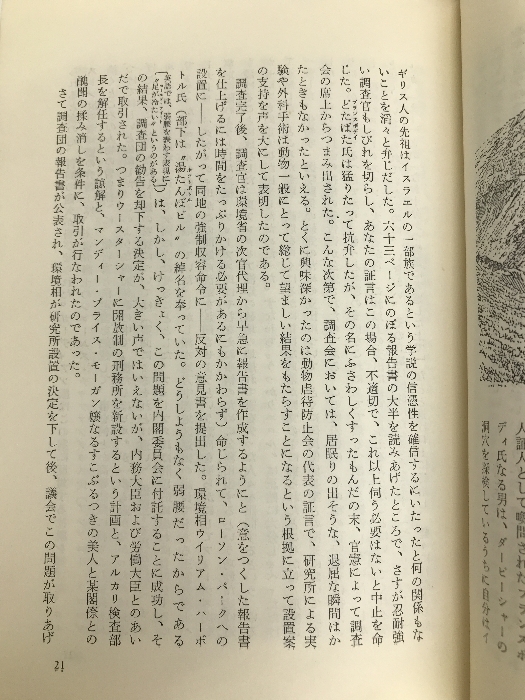 人調人とし
ディ氏なる男は、ダービーシャーの
洞穴を探検しているうちに自分はイ
ギリス人の先祖はイスラエルの一部族であるという学説の信憑性を確信するにいたったと何の関係もな
いことを滔々と弁じだした。六十三ページにのぼる報告書の大半を読みあげたところで、さすが忍耐強
い調査官もしびれを切らし、あなたの証言はこの場合、不適切で、これ以上伺う必要はないと中止を命
じた。どたばた氏は猛りたって抗弁したが、その名にふさわしくすったもんだの末、官憲によって調査
会の席上からつまみ出された。こんな次第で、調査会においては、居眠りの出そうな、退屈な瞬間はか
たときもなかったといえる。とくに興味深かったのは動物虐待防止会の代表の証言で、研究所による実
験や外科手術は動物一般にとって総じて望ましい結果をもたらすことになるという根拠に立って設置案
の支持を声を大にして表明したのである。
調査完了後、調査官は環境省の次官代理から早急に報告書を作成するようにと（意をつくした報告書
を仕上げるには時間をたっぷりかける必要があるにもかかわらず）命じられて、ローソン・パークへの
設置に――したがって同地の強制収容命令に――反対の意見書を提出した。環境相ウイリアム・ハーボ
トル氏（部下は〝湯たんぽビル〟の綽名を奉っていた。どうしようもなく弱腰だったからである
は、しかし、けっきょく、この問題を内閣委員会に付託することに成功し、そ
の結果、調査団の勧告を却下する決定が、大きい声ではいえないが、内務大臣および労働大臣とのあい
だで取引された。つまりウースターシャーに開放制の刑務所を新設するという計画と、アルカリ検査部
長を解任するという諒解と、マンディー・プライス・モーガン嬢なるすこぶるつきの美人と某閣僚との
醜聞の揉み消しを条件に、取引が行なわれたのであった。
さて調査団の報告書が公表され、環境相が研究所設置の決定を下して後、議会でこの問題が取りあげ
21